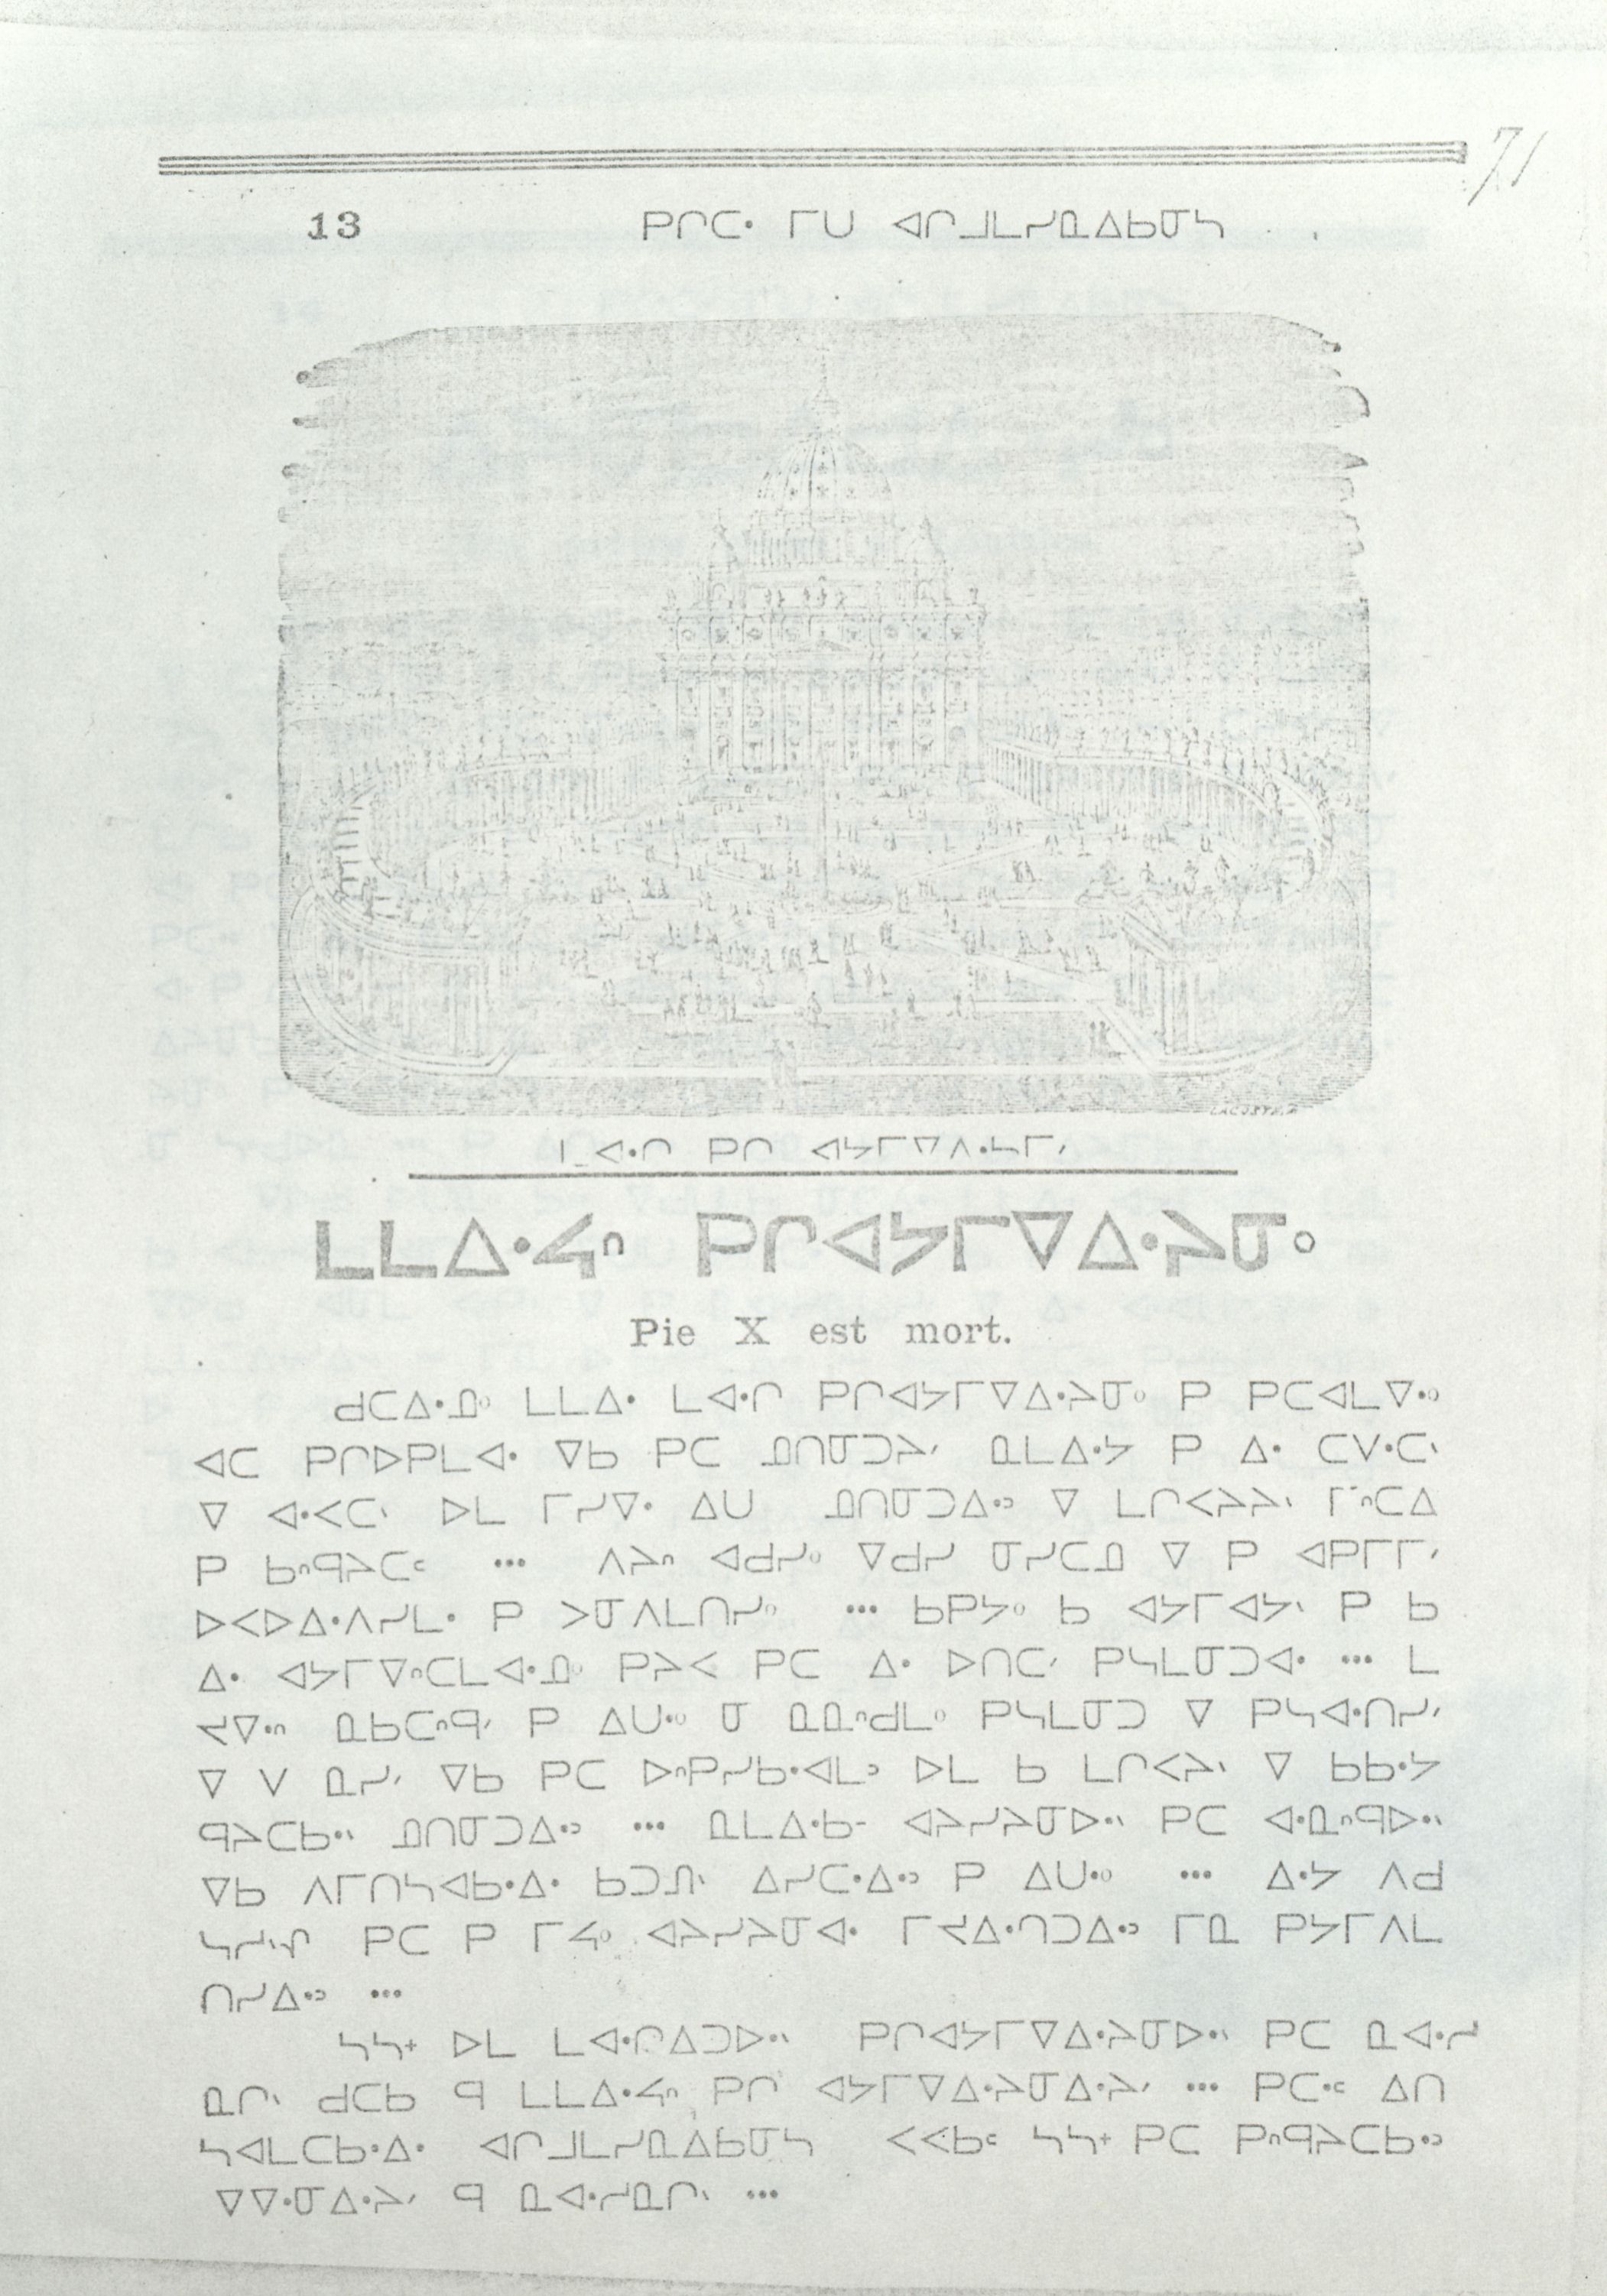 71
13 ᑭᒋᑕᐧ ᒥᑌ ᐊᒋᒧᒪᓯᓇᐃᑲᓂᓴ
ᒪᐊᐧᒋ ᑭᒋ ᐊᔭᒥᐁᐱᐧᓴᒥᐟ
ᒪᒪᐃᐧᔦᐢ ᑭᒋᐊᔭᒥᐁᐃᐧᔨᓂᐤ
Pie X est mort.
ᑯᑕᐃᐧᓄᐤ ᒪᒪᐃᐧ ᒪᐊᐧᒋ ᑭᒋᐊᔭᒥᐁᐃᐧᔨᓂᐤ ᑭ ᑭᑕᐊᒪᐁᐧᐤ
ᐊᑕ ᑭᒋᐅᑭᒪᐊᐧ ᐁᑲ ᑭᑕ ᓄᑎᓂᑐᔨᐟ ᓇᒪᐃᐧᔭ ᑭ ᐃᐧ ᑕᐯᐧᑕᐠ
ᐁ ᐊᐧᐸᑕᐠ ᐅᒪ ᒥᓯᐁᐧ ᐃᑌ ᓄᑎᓂᑐᐃᐧᐣ ᐁ ᒪᒋᐸᔨᔨᐠ ᒥᐢᑕᐃ
ᑭ ᑲᐢᑫᔨᑕᒼ ... ᐱᔨᐢ ᐊᑯᓯᐤ ᐁᑯᓯ ᓂᓯᑕᓄ ᐁ ᑭ ᐊᑭᒥᒥᐟ
ᐅᐸᐅᐃᐧᐱᓯᒪᐧ ᑭ ᐳᓂᐱᒪᑎᓯᐤ ... ᑲᑭᔭᐤ ᑲ ᐊᔭᒥᐊᔭᐠ ᑭ ᑲ
ᐃᐧ ᐊᔭᒥᐁᐢᑕᒪᐊᐧᓄᐤ ᑭᔨᐸ ᑭᑕ ᐃᐧ ᐅᑎᑕᐟ ᑭᓴᒪᓂᑐᐊᐧ ... ᒪ
ᔦᐁᐧᐢ ᓇᑲᑕᐢᑫᐟ ᑭ ᐃᑌᐧᐤ ᓂ ᓇᓇᐢᑯᒪᐤ ᑭᓴᒪᓂᑐ ᐁ ᑭᓴᐊᐧᑎᓯᐟ
ᐁ ᐯ ᓇᓯᐟ ᐁᑲ ᑭᑕ ᐅᐢᑭᓯᑲᐧᐊᒪᐣ ᐅᒪ ᑲ ᒪᒋᐸᔨᐠ ᐁ ᑲᑲᐧᔭ
ᑫᔨᑕᑲᐧᐠ ᓄᑎᓂᑐᐃᐧᐣ ... ᓇᒪᐃᐧᑲᐨ ᐊᔨᓯᔨᓂᐅᐧᐠ ᑭᑕ ᐊᐧᓇᐢᑫᐅᐧᐠ
ᐁᑲ ᐱᒥᑎᓴᐊᑲᐧᐃᐧ ᑲᑐᓕᐠ ᐃᓯᑕᐧᐃᐧᐣ ᑭ ᐃᑌᐧᐤ ... ᐃᐧᔭ ᐱᑯ
ᑭᑕ ᑭ ᒥᔦᐤ ᐊᔨᓯᔨᓂᐊᐧ ᒥᔦᐃᐧᒋᑐᐃᐧᐣ ᒥᓇ ᑭᔭᒥᐱᒪ
ᑎᓯᐃᐧᐣ ...
ᓴᓴᕀ ᐅᒪ ᒪᐊᐧᒋᐃᑐᐅᐧᐠ ᑭᒋᐊᔭᒥᐁᐃᐧᔨᓂᐅᐧᐠ ᑭᑕ ᓇᐊᐧᓯ
ᓇᒋᐠ ᑯᑕᑲ ᑫ ᒪᒪᐃᐧᔦᐢ ᑭᒋ ᐊᔭᒥᐁᐃᐧᔨᓂᐃᐧᔨᐟ ... ᑭᑕᐧᒼ ᐃᑎ
ᓴᐊᒪᑕᑲᐧᐃᐧ ᐊᒋᒧᒪᓯᓇᐃᑲᓂᓴ ᐸᐸᑲᒼ ᓴᓴᕀ ᑭᑕ ᑭᐢᑫᔨᑕᑲᐧᐣ
ᐁᐁᐧᓂᐃᐧᔨᐟ ᑫ ᓇᐊᐧᓯᓇᒋᐠ ...